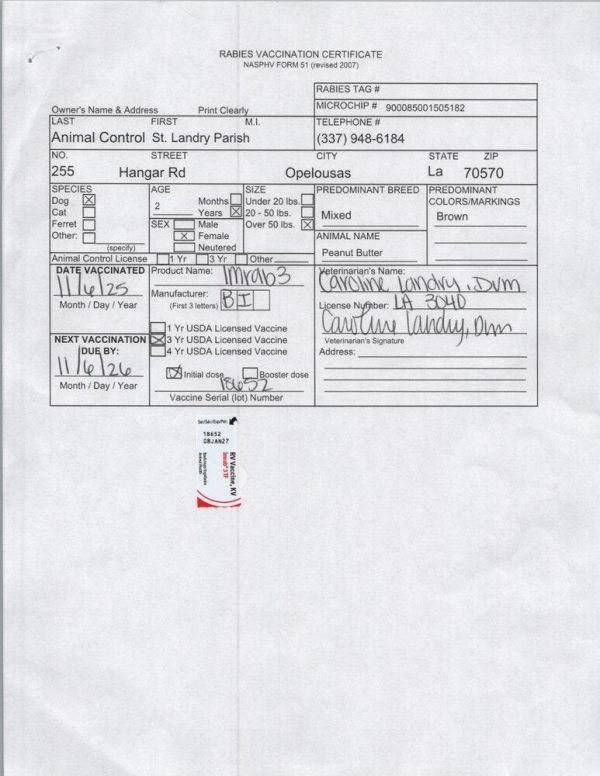 RABIES VACCINATION CERTIFICATE
NASPHV FORM 51 (revised 2007)
RABIES TAG #
Owner's Name & Address Print Clearly
MICROCHIP # 900085001505182
LAST FIRST M.I. TELEPHONE #
Animal Control St. Landry Parish (337) 948-6184
NO. STREET CITY STATE ZIP
255 Hangar Rd Opelousas La 70570
SPECIES AGE SIZE PREDOMINANT BREED PREDOMINANT COLORS/MARKINGS
Dog X 2 Months Under 20 lbs.
Cat Years X 20 - 50 lbs. Mixed Brown
Ferret SEX Male Over 50 lbs. X
Other: X Female ANIMAL NAME
(specify) Neutered Peanut Butter
Animal Control License 1 Yr 3 Yr Other
DATE VACCINATED Product Name: Imrab3 Veterinarian's Name:
11/6/25 Caroline Landry, DVM
Month / Day / Year Manufacturer: BI License Number: LA 3040
(First 3 letters) Caroline Landry, DVM
1 Yr USDA Licensed Vaccine
NEXT VACCINATION X 3 Yr USDA Licensed Vaccine Veterinarian's Signature
DUE BY: 4 Yr USDA Licensed Vaccine Address:
11/6/26 X Initial dose Booster dose
Month / Day / Year 18652
Vaccine Serial (lot) Number
18652
08JAN27
RV Vaccine, KV